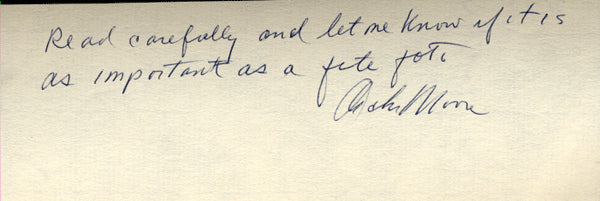 Read carefully and let me know if it is
as important as a fete foto
Archie Moore